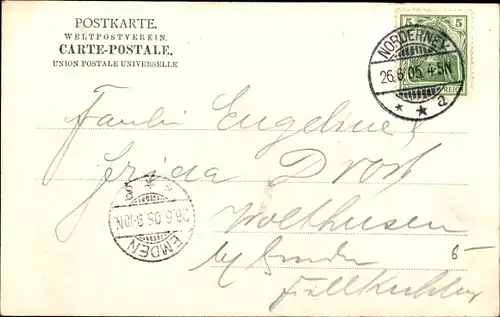 POSTKARTE.
WELTPOSTVEREIN.
CARTE-POSTALE.
UNION POSTALE UNIVERSELLE
5 5
REICH
NORDERNEY.
26.6.05. 4-5N
* * a
Fräulein Engeline
Frida Drost
Wolthusen
by Emden
5
EMDEN
26.6.05. 9-10N.